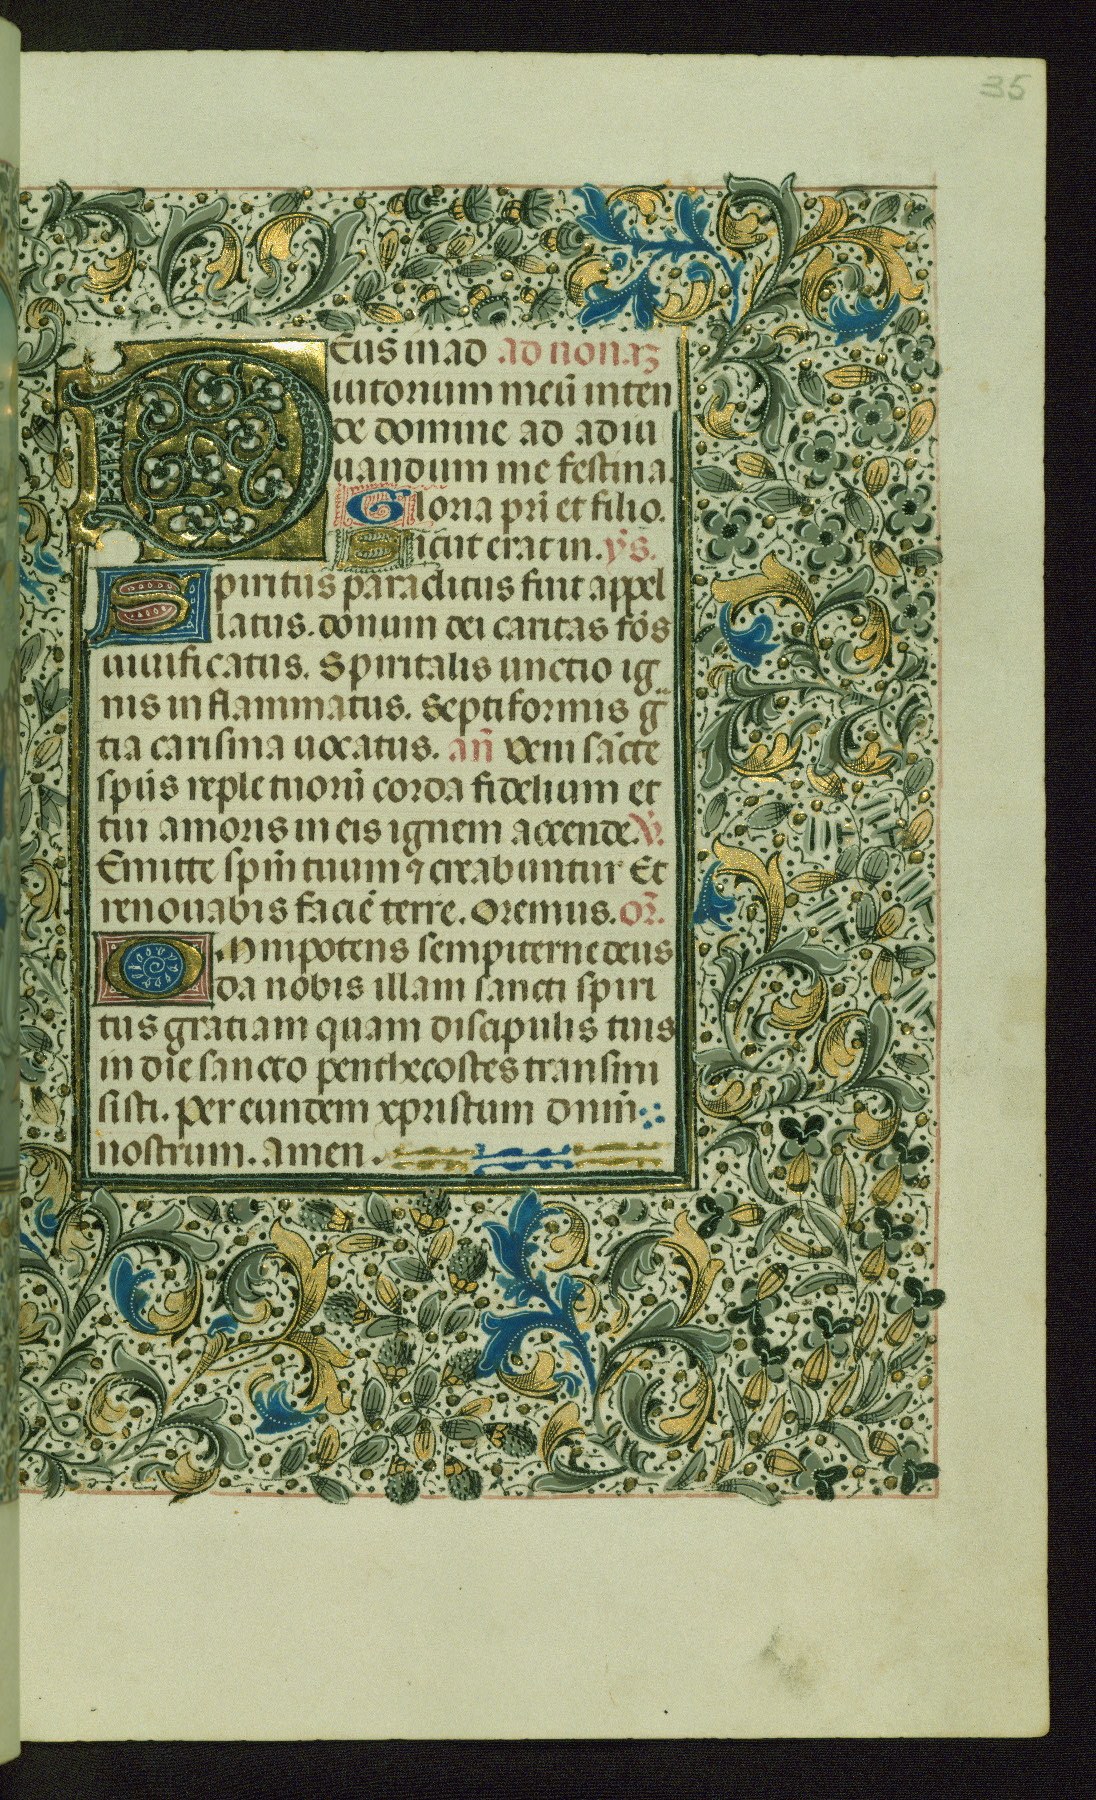 35
Deus in ad ad nonaꝫ
iutorium meū inten
de domine ad adiu
uandum me festina.
Gloria pr̄i et filio.
Sicut erat in. ẏs.
Spiritus paraclitus fuit appel
latus. donum dei caritas fōs
uiuificatus. Spiritalis unctio ig
nis inflammatus. Septiformis g̈
tia carisma uocatus. an̄ veni sācte
sp̄us reple tuorū corda fidelium et
tui amoris in eis ignem accende. V̇.
Emitte spm̄ tuum ⁊ creabuntur Et
renouabis faciē terre. Oremus. or̄.
Omnipotens sempiterne deus
da nobis illam sancti spiri
tus gratiam quam discipulis tuis
in die sancto penthecostes transmi
sisti. Per eundem xpristum dnm̄
nostrum. Amen.